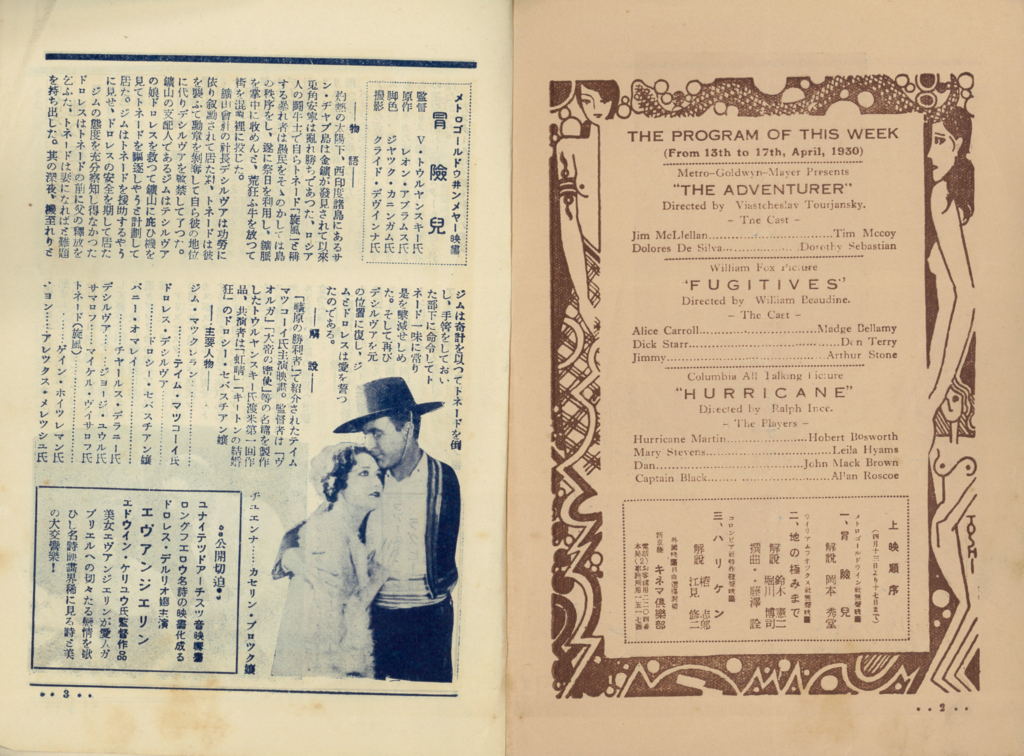 THE PROGRAM OF THIS WEEK
(From 13th to 17th, April, 1930)
Metro-Goldwyn-Mayer Presents
"THE ADVENTURER"
Directed by Viastcheslav Tourjansky.
– The Cast –
Jim McLlellan.........................Tim Mccoy
Dolores De Silva...............Dorothy Sebastian
William Fox Picture
"FUGITIVES"
Directed by William Beaudine.
– The Cart –
Alice Carroll........................Madge Bellamy
Dick Starr...............................Don Terry
Jimmy................................Arthur Stone
Columbia All Talking Picture
"HURRICANE"
Directed by Ralph Ince.
– The Players –
Hurricane Martin................Hobert Bosworth
Mary Stevens..........................Leila Hyams
Dan.............................John Mack Brown
Captain Black.........................Allan Roscoe
上映順序
(四月十三日より十七日まで)
一、冒險兒
解說 岡本秀堂
二、地の極みまで
解說 鈴木憲二
堀川博司
選曲・藤澤詮
三、ハリケン
解說
江見修二
キネマ倶樂部
TOSHI
・・2・・
メトロゴールドウ井ンメヤー映畫
冒險兒
監督 V・トウルヤンスキー氏
原作 レオン・アブラムス氏
脚色 ジヤツク・カニンガム氏
撮影 クライド・デヴインナ氏
――物語――
灼熱の太陽下、西印度諸島にあるサ
ン・チヤブ島は金鑛が發見されて以來
兎角安寧は亂れ勝ちであつた、ロシア
人の鬪牛士で自らトネード「旋風」と稱
する暴れ者は島民をそゝのかしては島
の秩序をし、遂に祭日を利用し、鑛脈
を掌中に收めんと、荒狂ふ牛を放つて
街を混亂裡に投じた。
鑛山會社の社長デシルヴアは功勞に
依り叙勳されて居たが、トネードは彼
を襲ふて勳章を剝奪して自ら彼の地位
に代りデシルヴアを監禁して了つた。
鑛山の支配人であるジムはデシルヴア
の娘ドロレスを救つて鑛山に庇ひ機を
見てトネードを驅逐しやうと計劃して
居た。ジムはトネードを援助するやう
に見せ、ドロレスの安全を期して居た
ジムの態度を充分察知し得なかつた
ドロレスはトネードの前に父の釋放を
乞ふた、トネードは妻になればと難題
を持ち出した。其の深夜、機至れりと
ジムは奇計を以つてトネードを倒
し、手筈をしておい
た部下に命令してト
ネード一味に當り
是を擊滅せしめ
た。そして再び
デシルヴアを元
の位置に復し、ジ
ムとドロレスは愛を誓つ
たのである。
――解說――
「曠原の勝利者」で紹介されたテイム
マツコーイ氏主演映畫。監督者は「ヴ
オルガ」「大帝の密使」等の名篇を製作
したトウルヤンスキー氏渡米第一回作
品、共演者は「虹晴」「キートンの結婚
狂」のドロシー・セバスチアン孃
――主要人物――
ジム・マツクレラン
………テイム・マツコーイ氏
ドロレス・デシルヴア
……ドロシー・セバスチアン孃
バニー・オマレイ
………チヤールス・デラニー氏
デシルヴア………ジヨージ・コウル氏
サマロフ……マイケル・ヴイサロフ氏
トネード(旋風)
………ゲイン・ホイツトマン氏
・ヨン……アレツクス・メレツシユ氏
チユエンナ……カセリン・ブロツク孃
◦◦公開切迫◦◦
ユナイテツドアーチスツ音映畫
ロングフエロウ名詩の映畫化成る
ドロレス・デルリオ孃主演
エヴアンジエリン
エドウイン・ケリユウ氏監督作品
美女エヴアンジエリンが愛人ガ
ブリエルへの切々たる戀情を歌
ひし名詩映畫界稀に見る詩と美
の大交響樂!
・・3・・